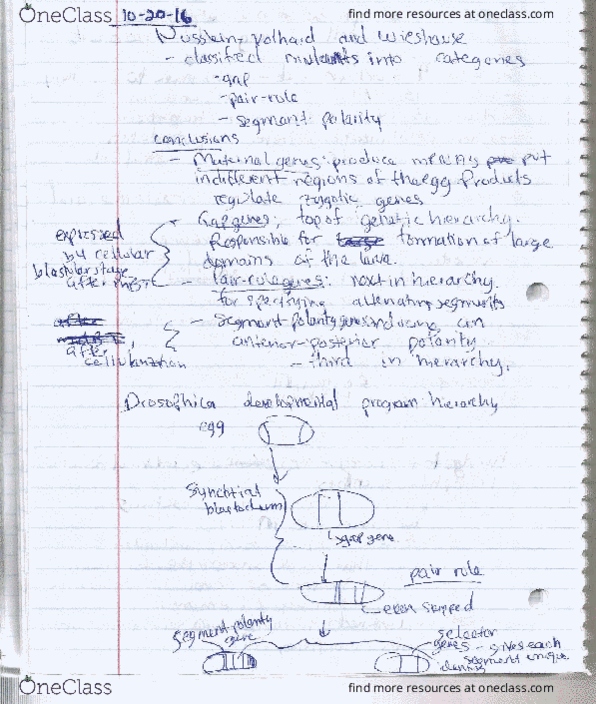 OneClass
find more resources at oneclass.com
10-20-16
Nusslein-volhard and Wieshause
- classified mutants into categories
-gap
-pair-rule
- segment polarity
Conclusions
- Maternal genes: produce mRNAs put
in different regions of the egg Products
regulate zygotic genes
- Gap genes; top of genetic hierarchy.
Responsible for formation of large
domains of the larva.
expressed
by cellular
blastular stage
after MBT
- Pair-rule genes: next in hierarchy.
for specifying alternating segments
- Segment-polarity genes inducing an
anterior-posterior polarity
- third in hierarchy.
after
after
cellularization
Drosophica developmental program hierarchy
egg
Synchtial
blastoderm
gap gene
pair rule
even skipped
segment polarity
gene
selector
genes - gives each
segment unique
identity
OneClass
find more resources at oneclass.com